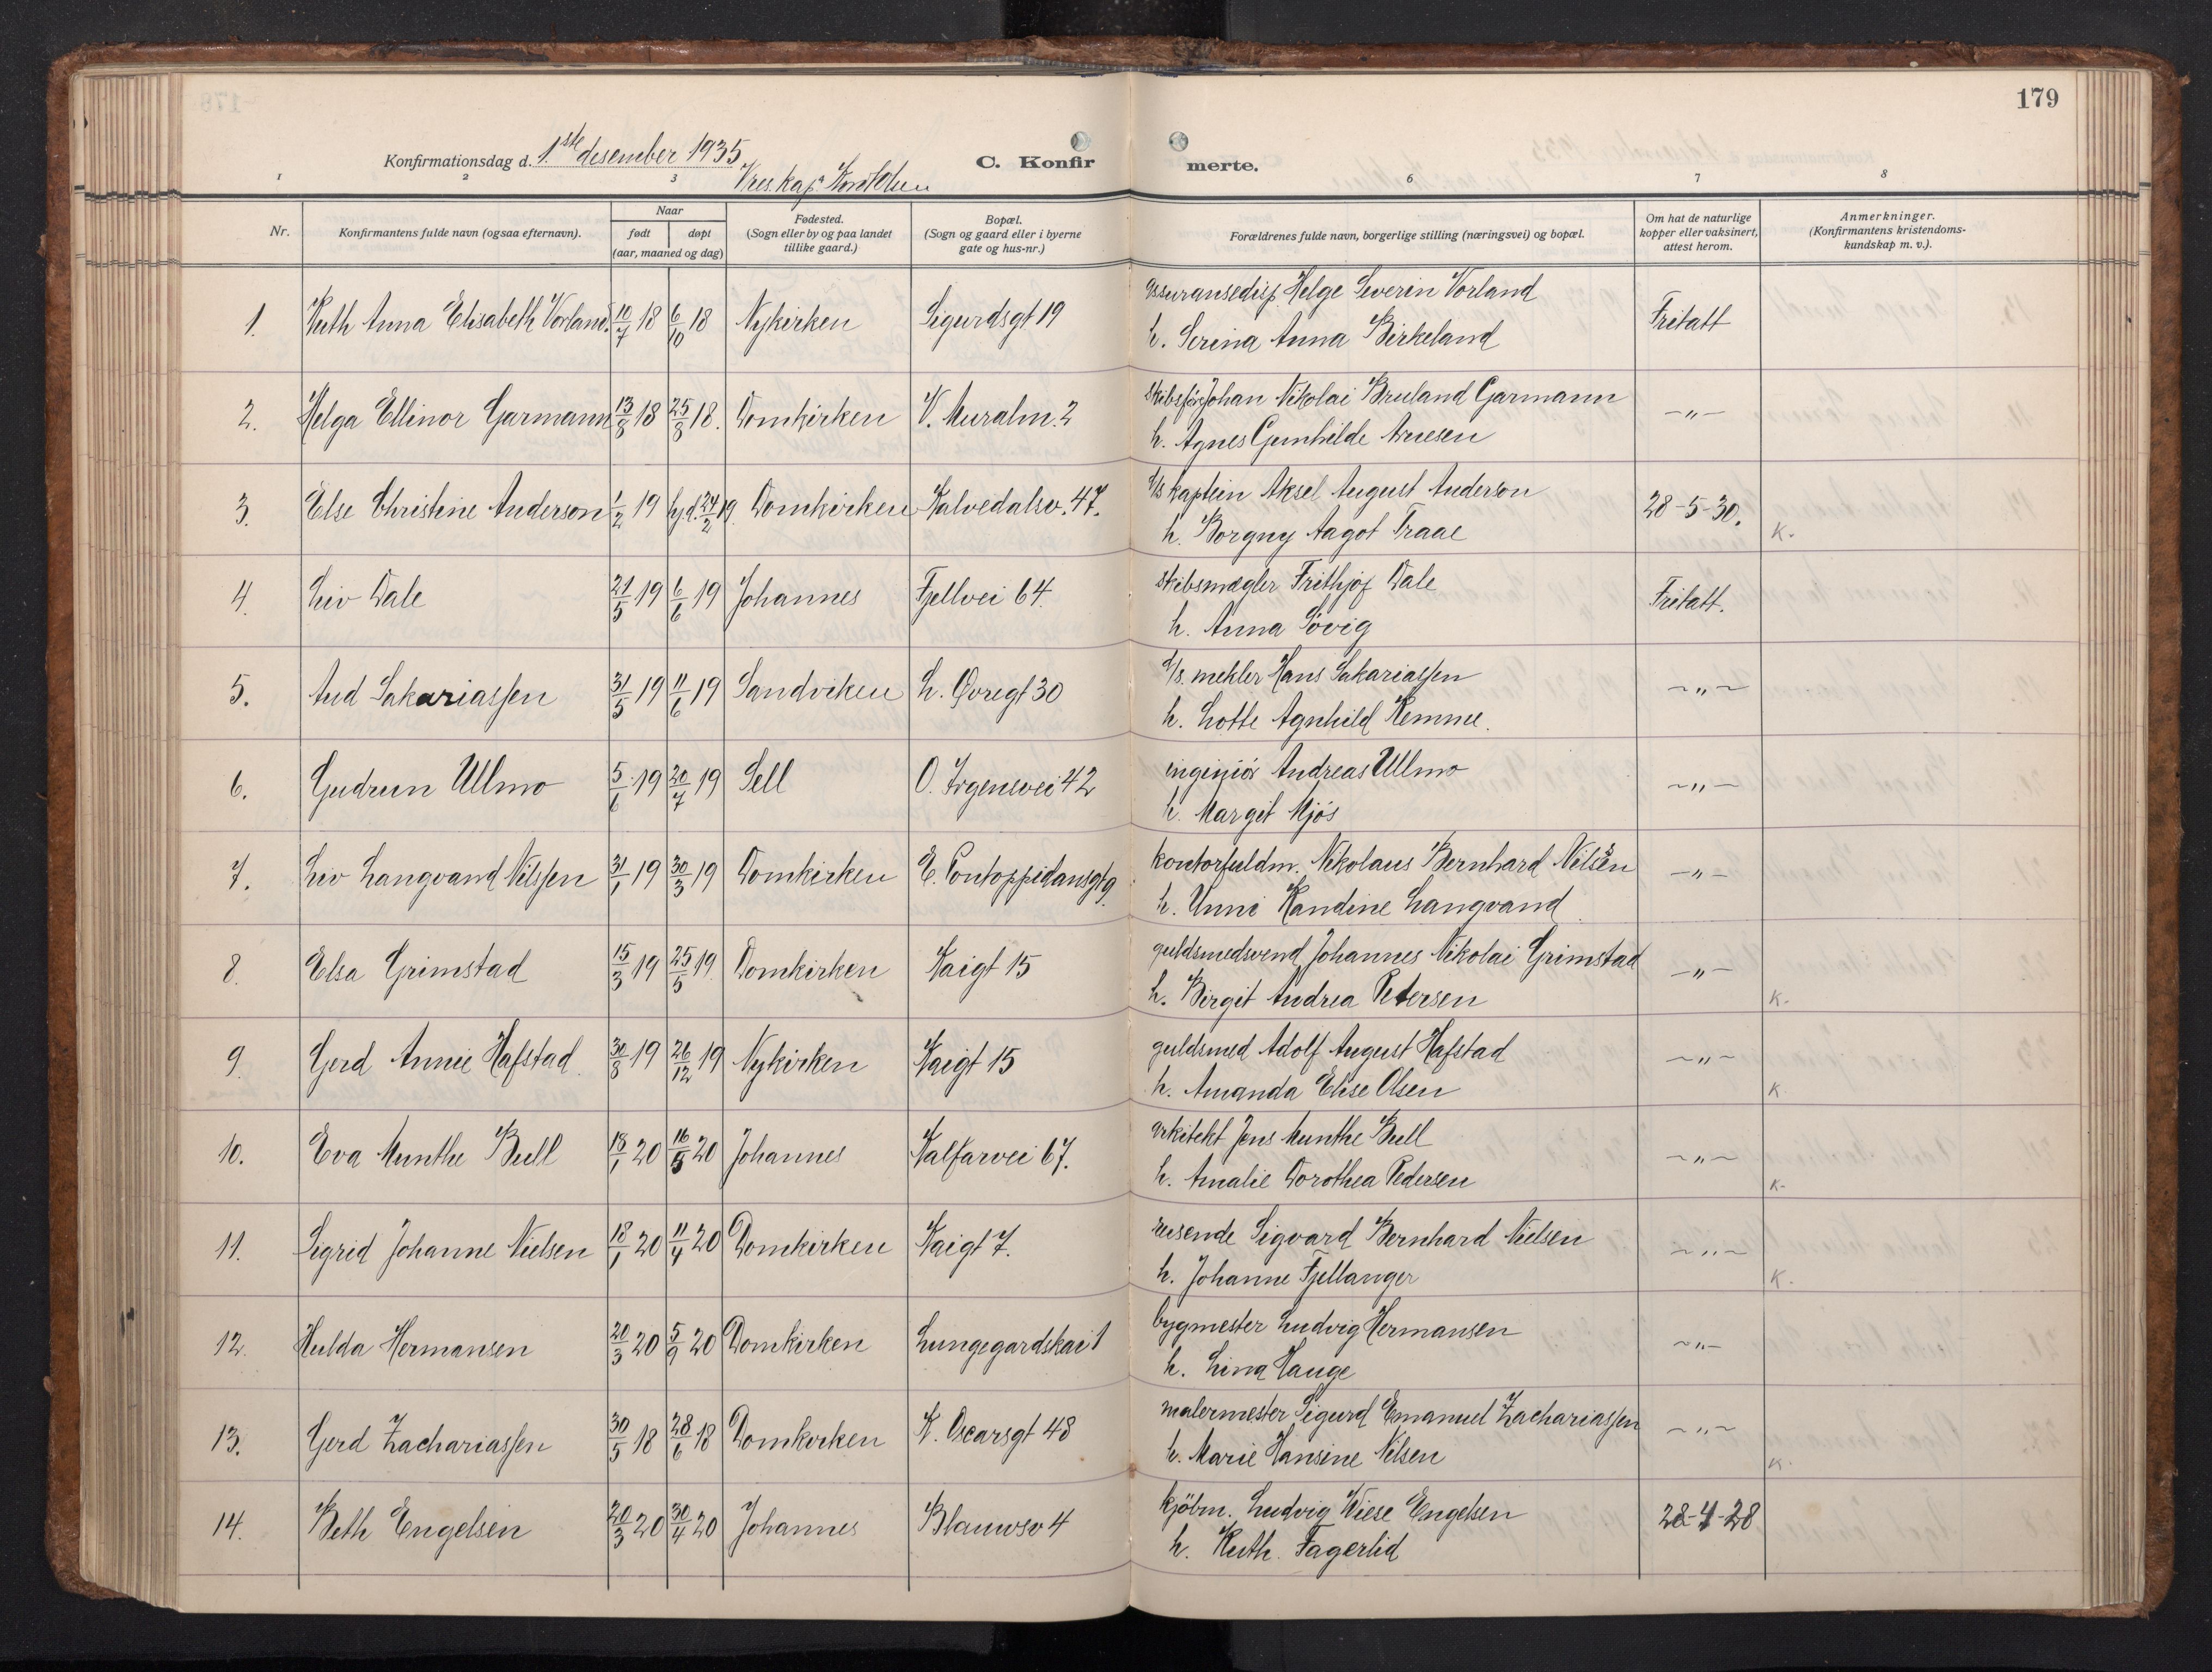 179
Konfirmationsdag d. 1.ste desember 1935 C. Konfir merte.
Nr.
Konfirmantens fulde navn (ogsaa efternavn).
Naar
født døpt
(aar, maaned og dag)
Fødested.
(Sogn eller by og paa landet
tillike gaard.)
Bopæl.
(Sogn og gaard eller i byerne
gate og hus-nr.)
Forældrenes fulde navn, borgerlige stilling (næringsvei) og bopæl.
Om hat de naturlige
kopper eller vaksinert,
attest herom.
Anmerkninger.
(Konfirmantens kristendoms-
kundskap m. v.).
1 2 3 6 7 8
1. Ruth Anna Elisabeth Vorland 10/7 18 6/10 18 Nykirken Sigurdsgt 19 Helge Severin Vorland
h. Serina Anna Birkeland Fritatt
2. Helga Ellinor Garmann 13/8 18 25/8 18. Domkirken V. Muralm. 2 skibsfør Johan Nikolai Bruland Garmann
h. Agnes Gunhilde Arnesen -"-
3. Else Christine Anderson 1/2 19 hj.d. 24/2 19. Domkirken Kalvedalsv. 47. d/s kaptein Aksel August Anderson
h. Borgny Aagot Traae 28-5-30. K.
4. Liv Dale 21/5 19 6/6 19 Johannes Fjellvei 64. skibsmægler Frithjof Dale
h. Anna Søvig Fritatt.
5. Aud Sakariassen 31/5 19 11/6 19 Sandviken L. Øvregt 30 d/s. mekler Hans Sakariassen
h. Lotte Agnhild Remme. -"-
6. Gudrun Ullmo 5/6 19 20/7 19 Sell O. Irgensvei 42 ingeniør Andreas Ullmo
h. Margit Mjøs -"-
7. Liv Langvand Nilssen 31/1 19 30/3 19 Domkirken E. Pontoppidansgt 9. kontorfuldm. Nikolaus Bernhard Nilsen
h. Unni Randine Langvand -"-
8. Elsa Grimstad 15/3 19 25/5 19 Domkirken Kaigt 15 guldsmedsvend Johannes Nikolai Grimstad
h. Birgit Andrea Petersen -"- K.
9. Gerd Annie Hafstad 30/8 19 26/12 19 Nykirken Kaigt 15 guldsmed Adolf August Hafstad
h. Amanda Elise Olsen -"- K
10. Eva Munthe Bull 18/1 20 16/5 20 Johannes Kalfarvei 67. arkitekt Jens Munthe Bull
h. Amalie Dorothea Pedersen -"- K.
11. Sigrid Johanne Nielsen 18/1 20 11/4 20 Domkirken Kaigt 7. reisende Sigvard Bernhard Nielsen
h. Johanne Fjellanger -"- K.
12. Hulda Hermansen 20/3 20 5/9 20 Domkirken Lungegardskai 1 bygmester Ludvig Hermansen
h. Lina Hauge -"-
13. Gerd Zachariassen 30/5 18 28/6 18 Domkirken K. Oscarsgt 48 malermester Sigurd Emanuel Zachariassen
h. Marie Hansine Nilsen -"- K.
14. Beth Engelsen 20/3 20 30/4 20 Johannes Blauwsv 4 kjöbm. Ludvig Wiese Engelsen
h. Ruth Fagerlid 28-4-28